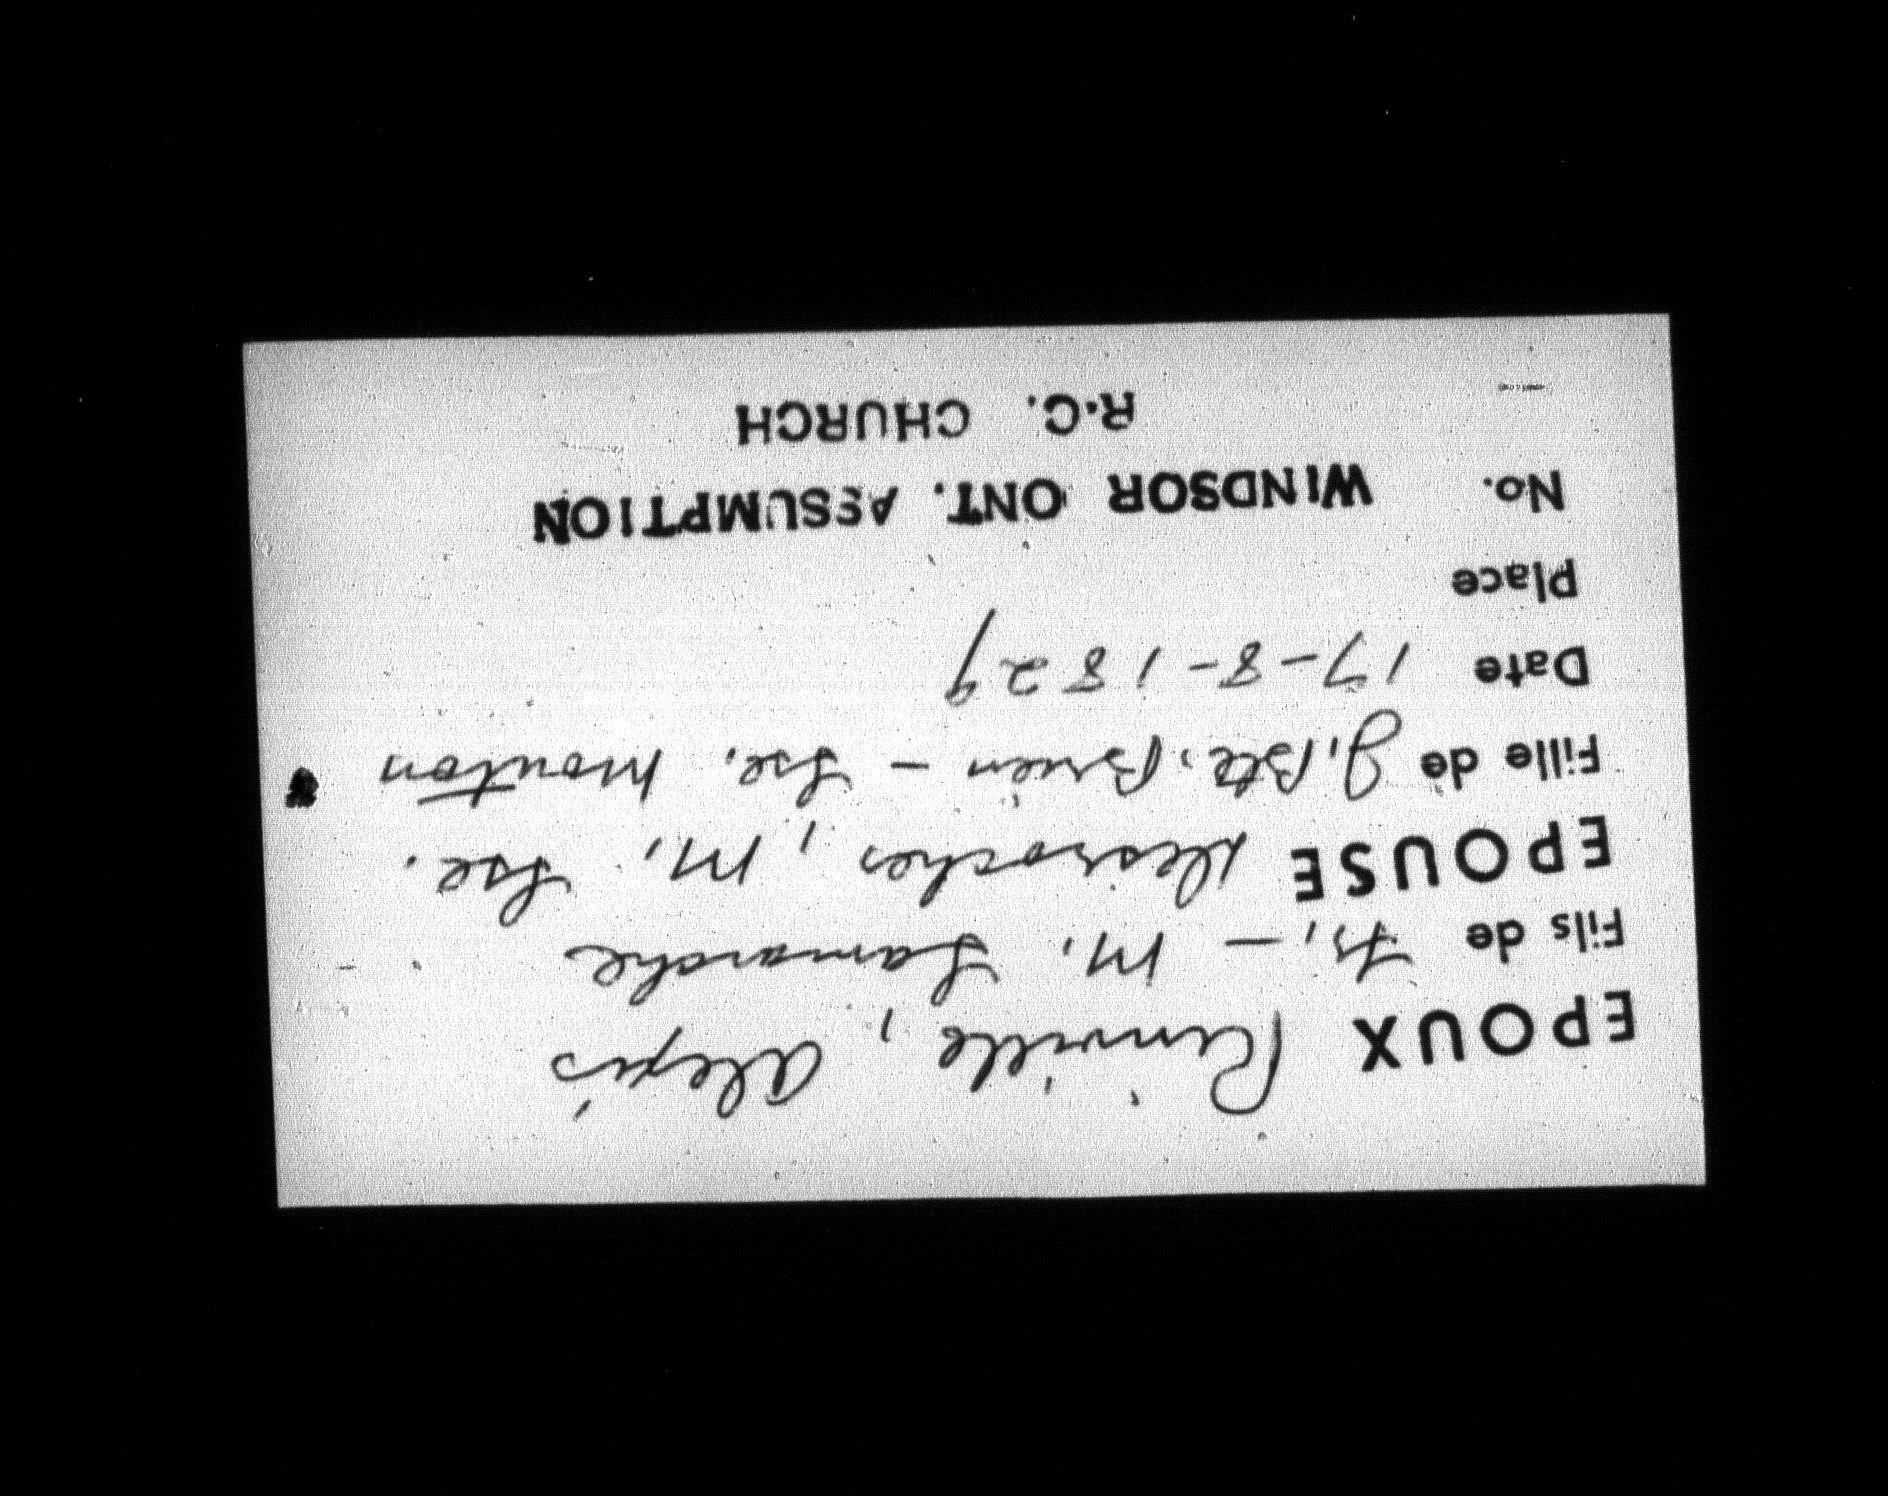 EPOUX Rinville, Alexis
Fils de Fs, - M. Lamarche
EPOUSE Desroches, M. Lse.
Fille de J. Bte. Brien - Lse. Mouton
Date 17-8-1829
Place
No. WINDSOR ONT. ASSUMPTION
R.C. CHURCH